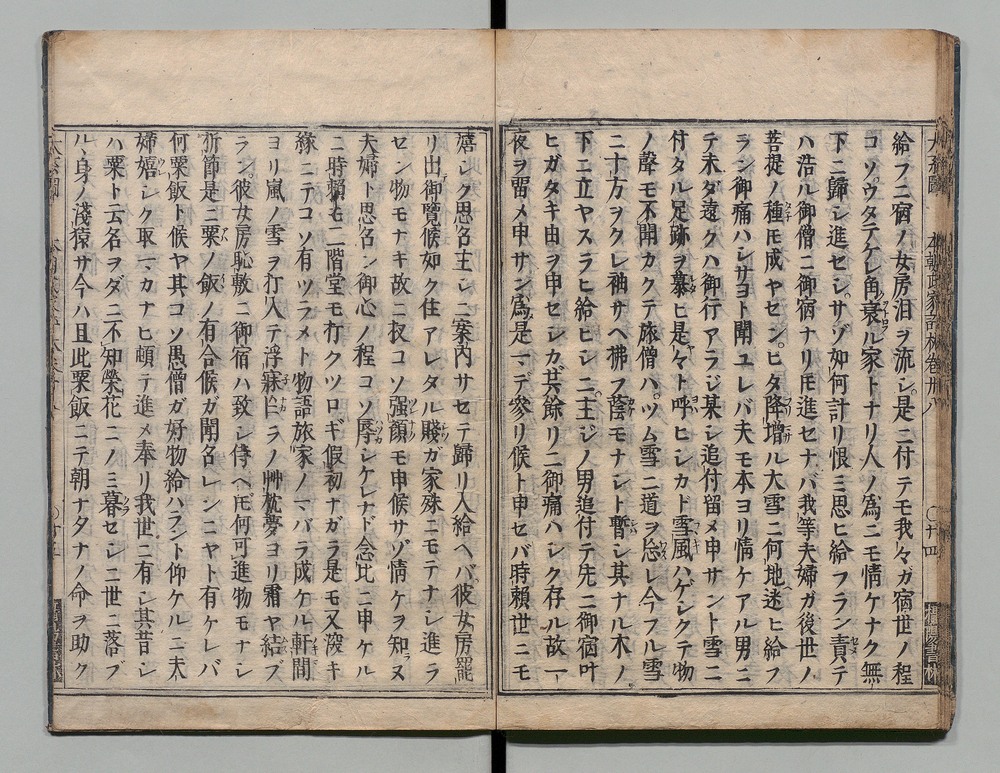 給フニ宿ノ女房泪ヲ流シ是ニ付テモ我々ガ宿世ノ程
コソウタテケレ角衰ル家トナリ人ノ為ニモ情ケナク無
下ニ歸シ進セシサゾ如何計リ恨ミ思ヒ給フラン責テ
ハ浩ル御僧ニ御宿ナリモ進セナバ我等夫婦ガ後世ノ
菩提ノ種トモ成ヤセンヒタ降増ル大雪ニ何地迷ヒ給フ
ラン御痛ハシサヨト聞ユレバ夫モ本ヨリ情ケアル男ニ
テ未ダ遠クハ御行アラジ某シ追付留メ申サント雪ニ
付タル足跡ヲ慕ヒ是々ト呼ヒシカド雪風ハゲシクテ物
ノ聲モ不聞カクテ旅僧ハツム雪ニ道ヲ忘レ今フル雪
ニ十方ヲクレ袖サヘ拂フ蔭モナシト暫シ其ナル木ノ
下ニ立ヤスラヒ給ヒシニ主ジノ男追付テ先ニ御宿叶
ヒガタキ由ヲ申セシカ共餘リニ御痛ハシク存ル故一
夜ヲ留メ申サン為是マデ參リ候ト申セバ時頼世ニモ
嬉シク思召主シニ案内サセテ歸リ入給ヘバ彼女房罷
リ出御覧候如ク住アレタル賤ガ家殊ニモテナシ進ラ
セン物モナキ故ニ扨コソ強顔モ申候サゾ情ケヲ知ヌ
夫婦ト思召ン御心ノ程コソ辱シケレナド念比ニ申ケル
ニ時頼モ二階堂モ打クツロギ假初ナガラ是モ又深キ
縁ニテコソ有ツラメト物語旅家ノマバラ成ケル軒間
ヨリ嵐ノ雪ヲ打入テ浮寐ニラノ艸枕夢ヨリ霜ヤ結ブ
ラン彼女房恥敷ニ御宿ハ致シ侍ヘ𪜈何可進物モナシ
折節是ニ粟ノ飯ノ有合候ガ聞召レンニヤト有ケレバ
何粟飯ト候ヤ其コソ愚僧ガ好物給ハラント仰ケルニ夫
婦嬉シク取マカナヒ頓テ進メ奉リ我世ニ有シ其昔シ
ハ粟ト云名ヲダニ不知榮花ニノミ暮セシニ世ニ落ブ
ル身ノ淺猿サ今ハ且此粟飯ニテ朝ナタナノ命ヲ助ク